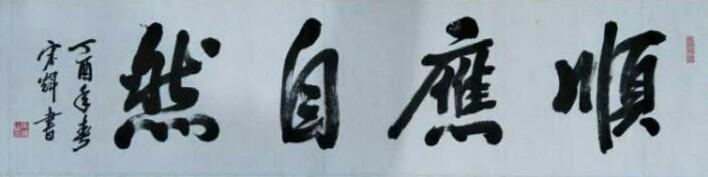 順應自然
丁酉年春
宋辉書